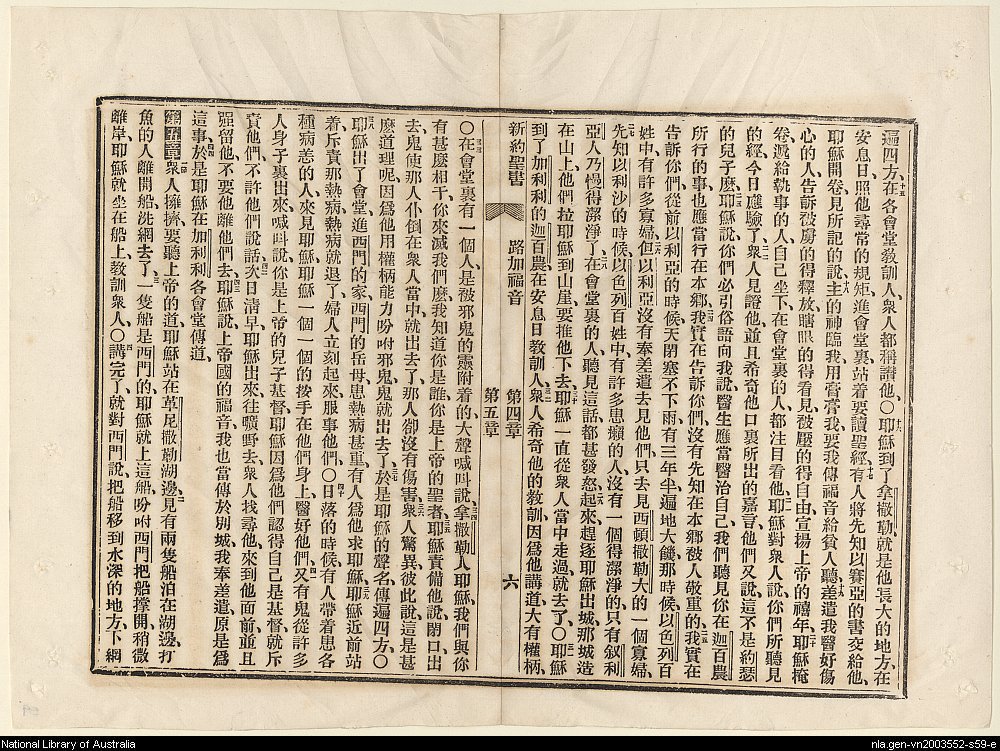 遍四方、十五在各會堂敎訓人、衆人都稱讚他、○十六耶穌到了拿撒勒、就是他長大的地方、在
安息日、照他尋常的規矩、進會堂裏站着要讀聖經、十七有人將先知以賽亞的書交給他、
耶穌開卷、見所記的說、十八主的神臨我、用膏膏我、要我傳福音給貧人聽、差遣我醫好傷
心的人、告訴被虜的得釋放、瞎眼的得看見、被壓的得自由、十九宣揚上帝的禧年、二十耶穌掩
卷遞給執事的人、自己坐下、在會堂裏的人、都注目看他、二一耶穌對衆人說、你們所聽見
的經、今日應驗了、二二衆人見證他、並且希奇他口裏所出的嘉言、他們又說、這不是約瑟
的兒子麼、二三耶穌說、你們必引俗語向我說、醫生應當醫治自己、我們聽見你在迦百農
所行的事、也應當行在本鄉、二四我實在告訴你們、沒有先知在本鄉被人敬重的、二五我實在
告訴你們、從前以利亞的時候、天閉塞不下雨、有三年半、遍地大饑、那時候、以色列百
姓中有許多寡婦、二六但以利亞沒有奉差遣去見他們、只去見西頓撒勒大的一個寡婦、
二七先知以利沙的時候、以色列百姓中有許多患癩的人、沒有一個得潔淨的、只有叙利
亞人乃慢得潔淨了、二八在會堂裏的人聽見這話、都甚發怒、二九起來趕逐耶穌出城、那城造
在山上、他們拉耶穌到山崖、要推他下去、三十耶穌一直從衆人當中走過就去了、○三一耶穌
到了加利利的迦百農、在安息日敎訓人、三二衆人希奇他的敎訓、因爲他講道大有權柄、
新約聖書 路加福音 第四章 第五章 六
○三三在會堂裏有一個人、是被邪鬼的靈附着的、大聲喊叫說、三四拿撒勒人耶穌、我們與你
有甚麼相干、你來滅我們麼、我知道你是誰、你是上帝的聖者、三五耶穌責備他說、閉口出
去、鬼使那人仆倒在衆人當中、就出去了、那人卻沒有傷害、三六衆人驚異、彼此說、這是甚
麼道理呢、因爲他用權柄能力吩咐邪鬼、鬼就出去了、三七於是耶穌的聲名傳遍四方、○
三八耶穌出了會堂、進西門的家、西門的岳母患熱病甚重、有人爲他求耶穌、三九耶穌近前站
着、斥責那熱病、熱病就退了、婦人立刻起來服事他們、○四十日落的時候、有人帶着患各
種病恙的人、來見耶穌、耶穌一個一個的按手在他們身上、醫好他們、四一又有鬼從許多
人身子裏出來喊叫說、你是上帝的兒子基督、耶穌因爲他們認得自己是基督、就斥
責他們、不許他們說話、四二次日淸早、耶穌出來往曠野去、衆人找尋他、來到他面前、並且
强留他、不要他離他們去、四三耶穌說、上帝國的福音、我也當傳於別城、我奉差遣原是爲
這事、四四於是耶穌在加利利各會堂傳道、
第五章 一衆人擁擠、要聽上帝的道、耶穌站在革尼撒勒湖邊、二見有兩隻船泊在湖邊、打
魚的人離開船洗網去了、三一隻船是西門的、耶穌就上這船、吩咐西門把船撐開、稍微
離岸、耶穌就坐在船上敎訓衆人、○四講完了、就對西門說、把船移到水深的地方、下網
National Library of Australia
nla.gen-vn2003552-s59-e